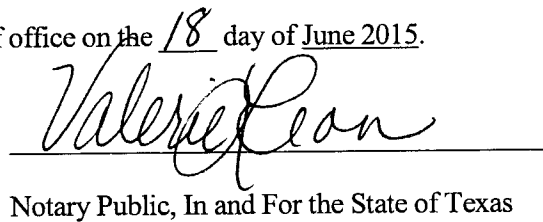 f office on the 18 day of June 2015.
Valerie Leon
Notary Public, In and For the State of Texas